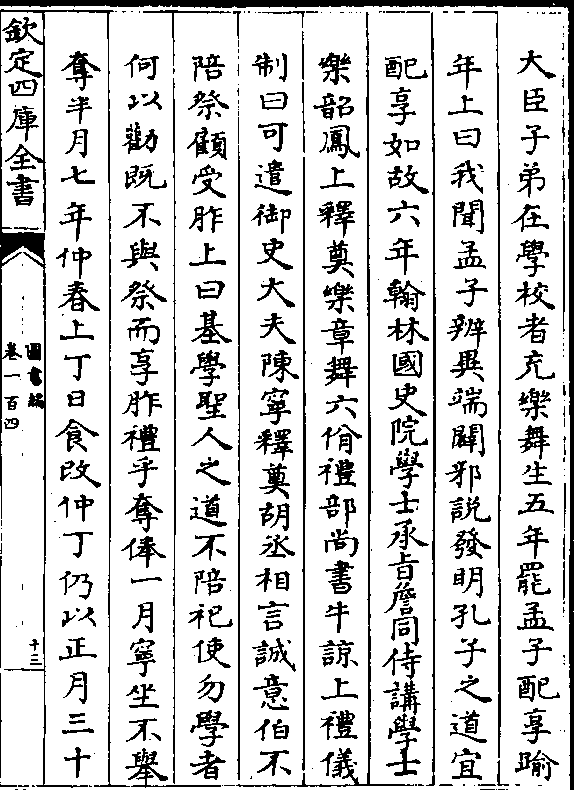 大臣子弟在學校者充樂舞生五年罷孟子配享踰
年上曰我聞孟子辨異端闢邪說發明孔子之道宜
配享如故六年翰林國史院學士承旨詹同侍講學士
樂韶鳳上釋奠樂章舞六佾禮部尚書牛諒上禮儀
制曰可遣御史大夫陳寧釋奠胡丞相言誠意伯不
陪祭顧受胙上曰基學聖人之道不陪祀使勿學者
何以勸既不與祭而享胙禮乎奪俸一月寧坐不舉
奪半月七年仲春上丁日食改仲丁仍以正月三十
欽定四庫全書
圖書編
卷一百四
十三